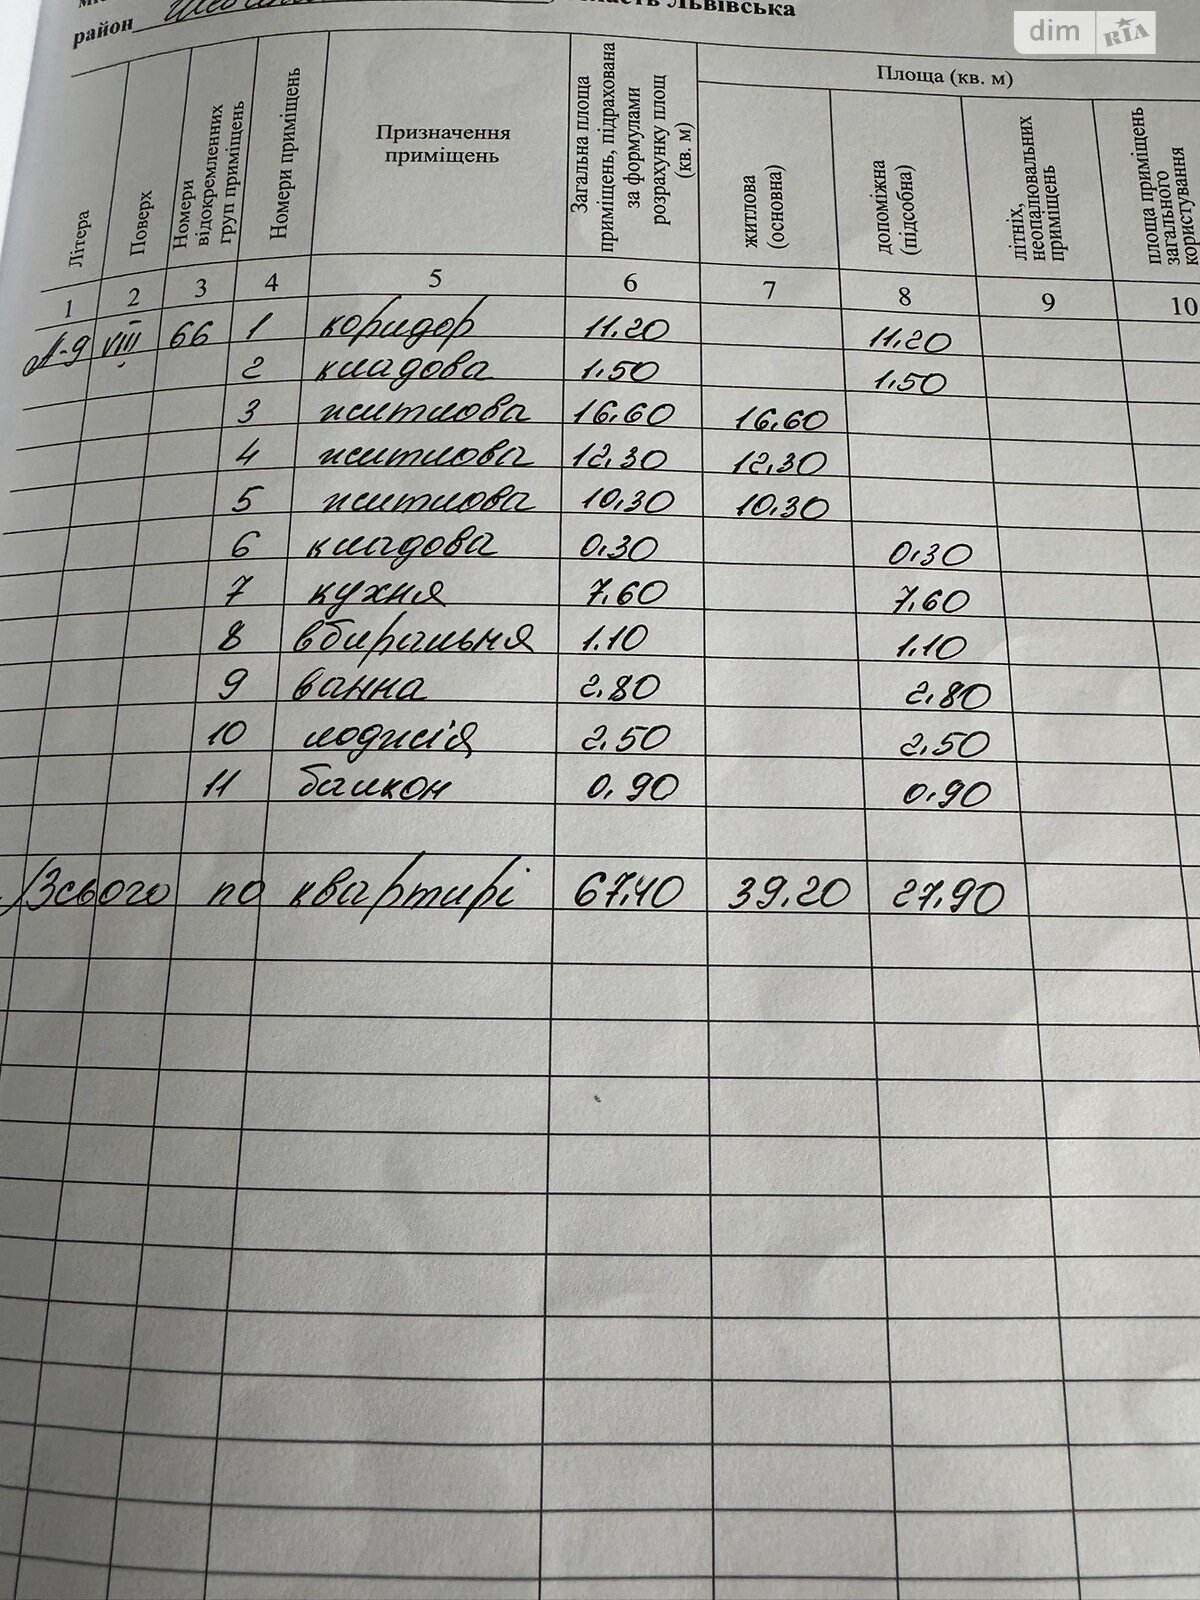 область Львівська
район
dim RIA
Літера
Поверх
Номери відокремленних груп приміщень
Номери приміщень
Призначення приміщень
Загальна площа приміщень, підрахована за формулами розрахунку площ (кв. м)
Площа (кв. м)
житлова (основна)
допоміжна (підсобна)
літніх, неопалювальних приміщень
площа приміщень загального користування
1 2 3 4 5 6 7 8 9 10
А-9 VIII 66 1 коридор 11.20 11.20
2 кладова 1.50 1.50
3 житлова 16.60 16.60
4 житлова 12.30 12.30
5 житлова 10.30 10.30
6 кладова 0.30 0.30
7 кухня 7.60 7.60
8 вбиральня 1.10 1.10
9 ванна 2.80 2.80
10 лоджія 2.50 2.50
11 балкон 0.90 0.90
Всього по квартирі 67.40 39.20 27.90